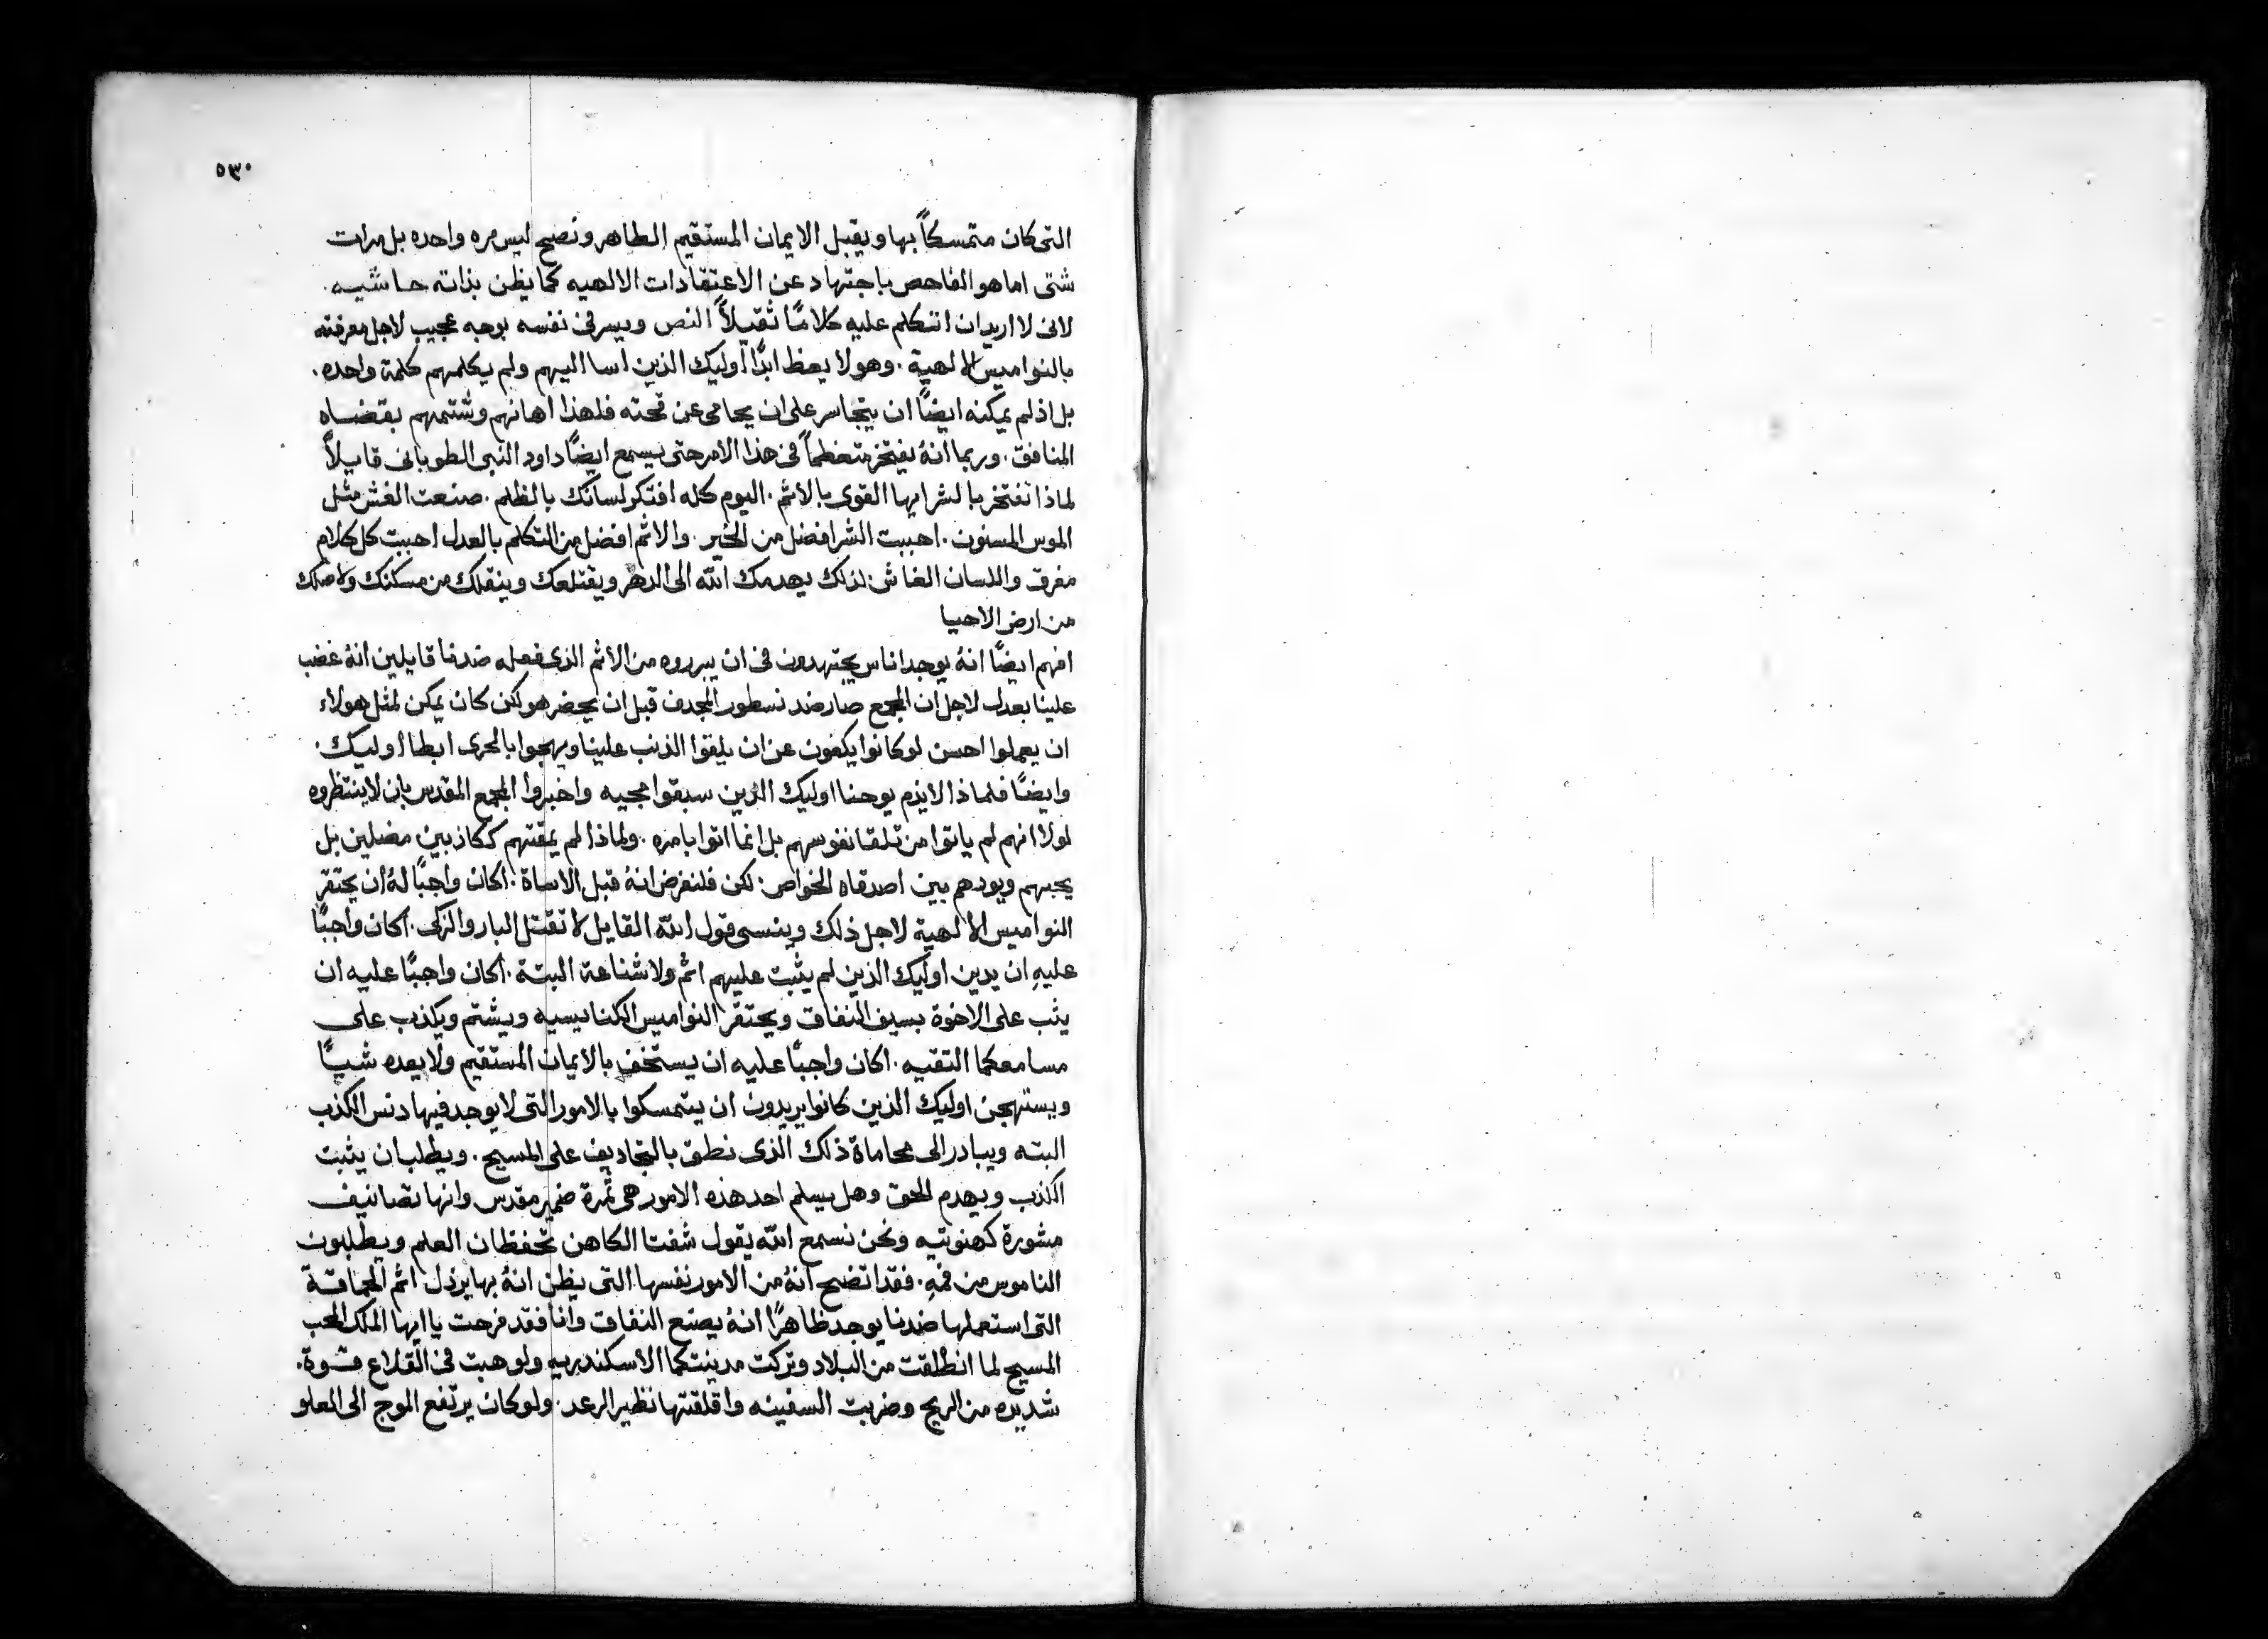 ٥٣٠
التى كان متمسكاً بها ويقبل الايمان المستقيم الطاهر ونصح ليس مره واحده بل مرات
شتى اما هو الفاحص باجتهاد عن الاعتقادات الالهيه كما يظن بذاته حاشيه.
لانى لا اريد ان اتكلم عليه كلامًا ثقيلاً النص ويسر فى نفسه بوجه عجيب لاجل معرفته
بالنواميس الالهية. وهو لا يعظ ابدًا اوليك الذين اسا اليهم ولم يكلمهم كلمة واحده.
بل اذ لم يمكنه ايضًا ان يتجاسر على ان يحامى عن قحته فلهذا اهانهم وشتمهم بقضاه
المنافق. وربما انهُ يفتخر متعظماً فى هذا الامر حتى يسمع ايضًا داود النبى الطوبانى قايلاً
لماذا تفتخر بالشر ايها القوى بالاثم. اليوم كله افتكر لسانك بالظلم. صنعت الغش مثل
الموس المسنون. احببت الشر افضل من الخير. والاثم افضل من التكلم بالعدل احببت كل كلام
مغرق واللسان الغاش. لذلك يهدمك الله الى الدهر ويقتلعك وينقلك من مسكنك واصلك
من ارض الاحيا
افهم ايضًا انهُ يوجد اناس يجتهدون فى ان يبرروه من الاثم الذى فعله ضدنا قايلين انهُ غضب
علينا بعدل لاجل ان المجمع صار ضد نسطور المجدف قبل ان يحضر هو لكن كان يمكن لمثل هولاء
ان يعملوا احسن لو كانوا يكفون عن ان يلقوا الذنب علينا ويهجوا بالحرى ابطا اوليك.
وايضًا فلماذا لا يذم يوحنا اوليك الذين سبقوا مجيه واخبروا المجمع المقدس بان لا ينتظروه
لولا انهم لم ياتوا من تلقا نفوسهم بل انما اتوا بامره. ولماذا لم يمقتهم ككاذبين مضلين بل
يحبهم ويودهم بين اصدقاه الخواص. لكن فلنفرض انهُ قبل الاساة. اكان واجبًا لهُ ان يحتقر
النواميس الالهية لاجل ذلك وينسى قول الله القايل لا تقتل البار والزكى. اكان واجبًا
عليهِ ان يدين اوليك الذين لم يثبت عليهم اثم ولا شناعة البتة. اكان واجبًا عليه ان
يثب على الاخوة بسيف النفاق ويحتقر النواميس الكنايسيه ويشتم ويكذب على
مسامعكما التقيه. اكان واجبًا عليه ان يستخف بالايمان المستقيم ولا يعده شيًا
ويستهجن اوليك الذين كانوا يريدون ان يتمسكوا بالامور التى لا يوجد فيها دنس الكذب
البته ويبادر الى محاماة ذلك الذى نطق بالتجاديف على المسيح. ويطلب ان يثبت
الكذب ويهدم الحق وهل يسلم احد هذه الامور هى ثمرة ضمير مقدس وانها تصانيف
مشورة كهنوتيه ونحن نسمع الله يقول شفتا الكاهن تحفظان العلم ويطلبون
الناموس من فمهِ. فقد اتضح انهُ من الامور نفسها التى يظن انهُ بها يرذل اثم الحماقة
التى استعملها ضدنا يوجد ظاهرًا انهُ يصنع النفاق وانا فقد فرحت يا ايها الملك المحب
المسيح لما انطلقت من البلاد وتركت مدينتكما الاسكندريه ولو هبت فى القلاع قوة.
شديده من الريح وضربت السفينه واقلقتها نظير الرعد. ولو كان يرتفع الموج الى العلو